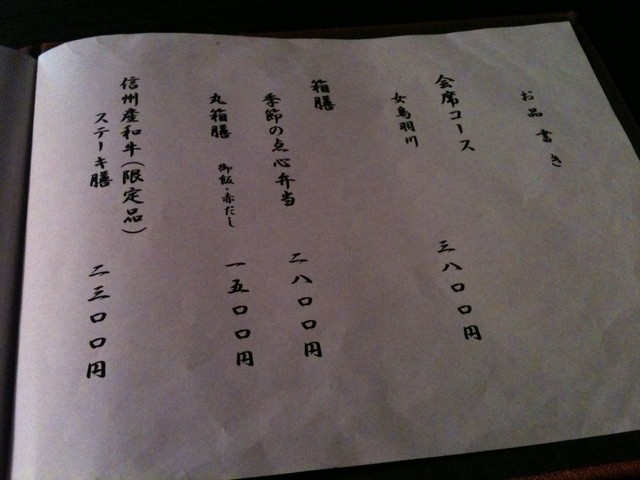 お品書き
会席コース
女鳥羽川
三八〇〇円
箱膳
二八〇〇円
季節の点心弁当
丸箱膳
御飯・赤だし
一五〇〇円
信州産和牛(限定品)
ステーキ膳
二三〇〇円